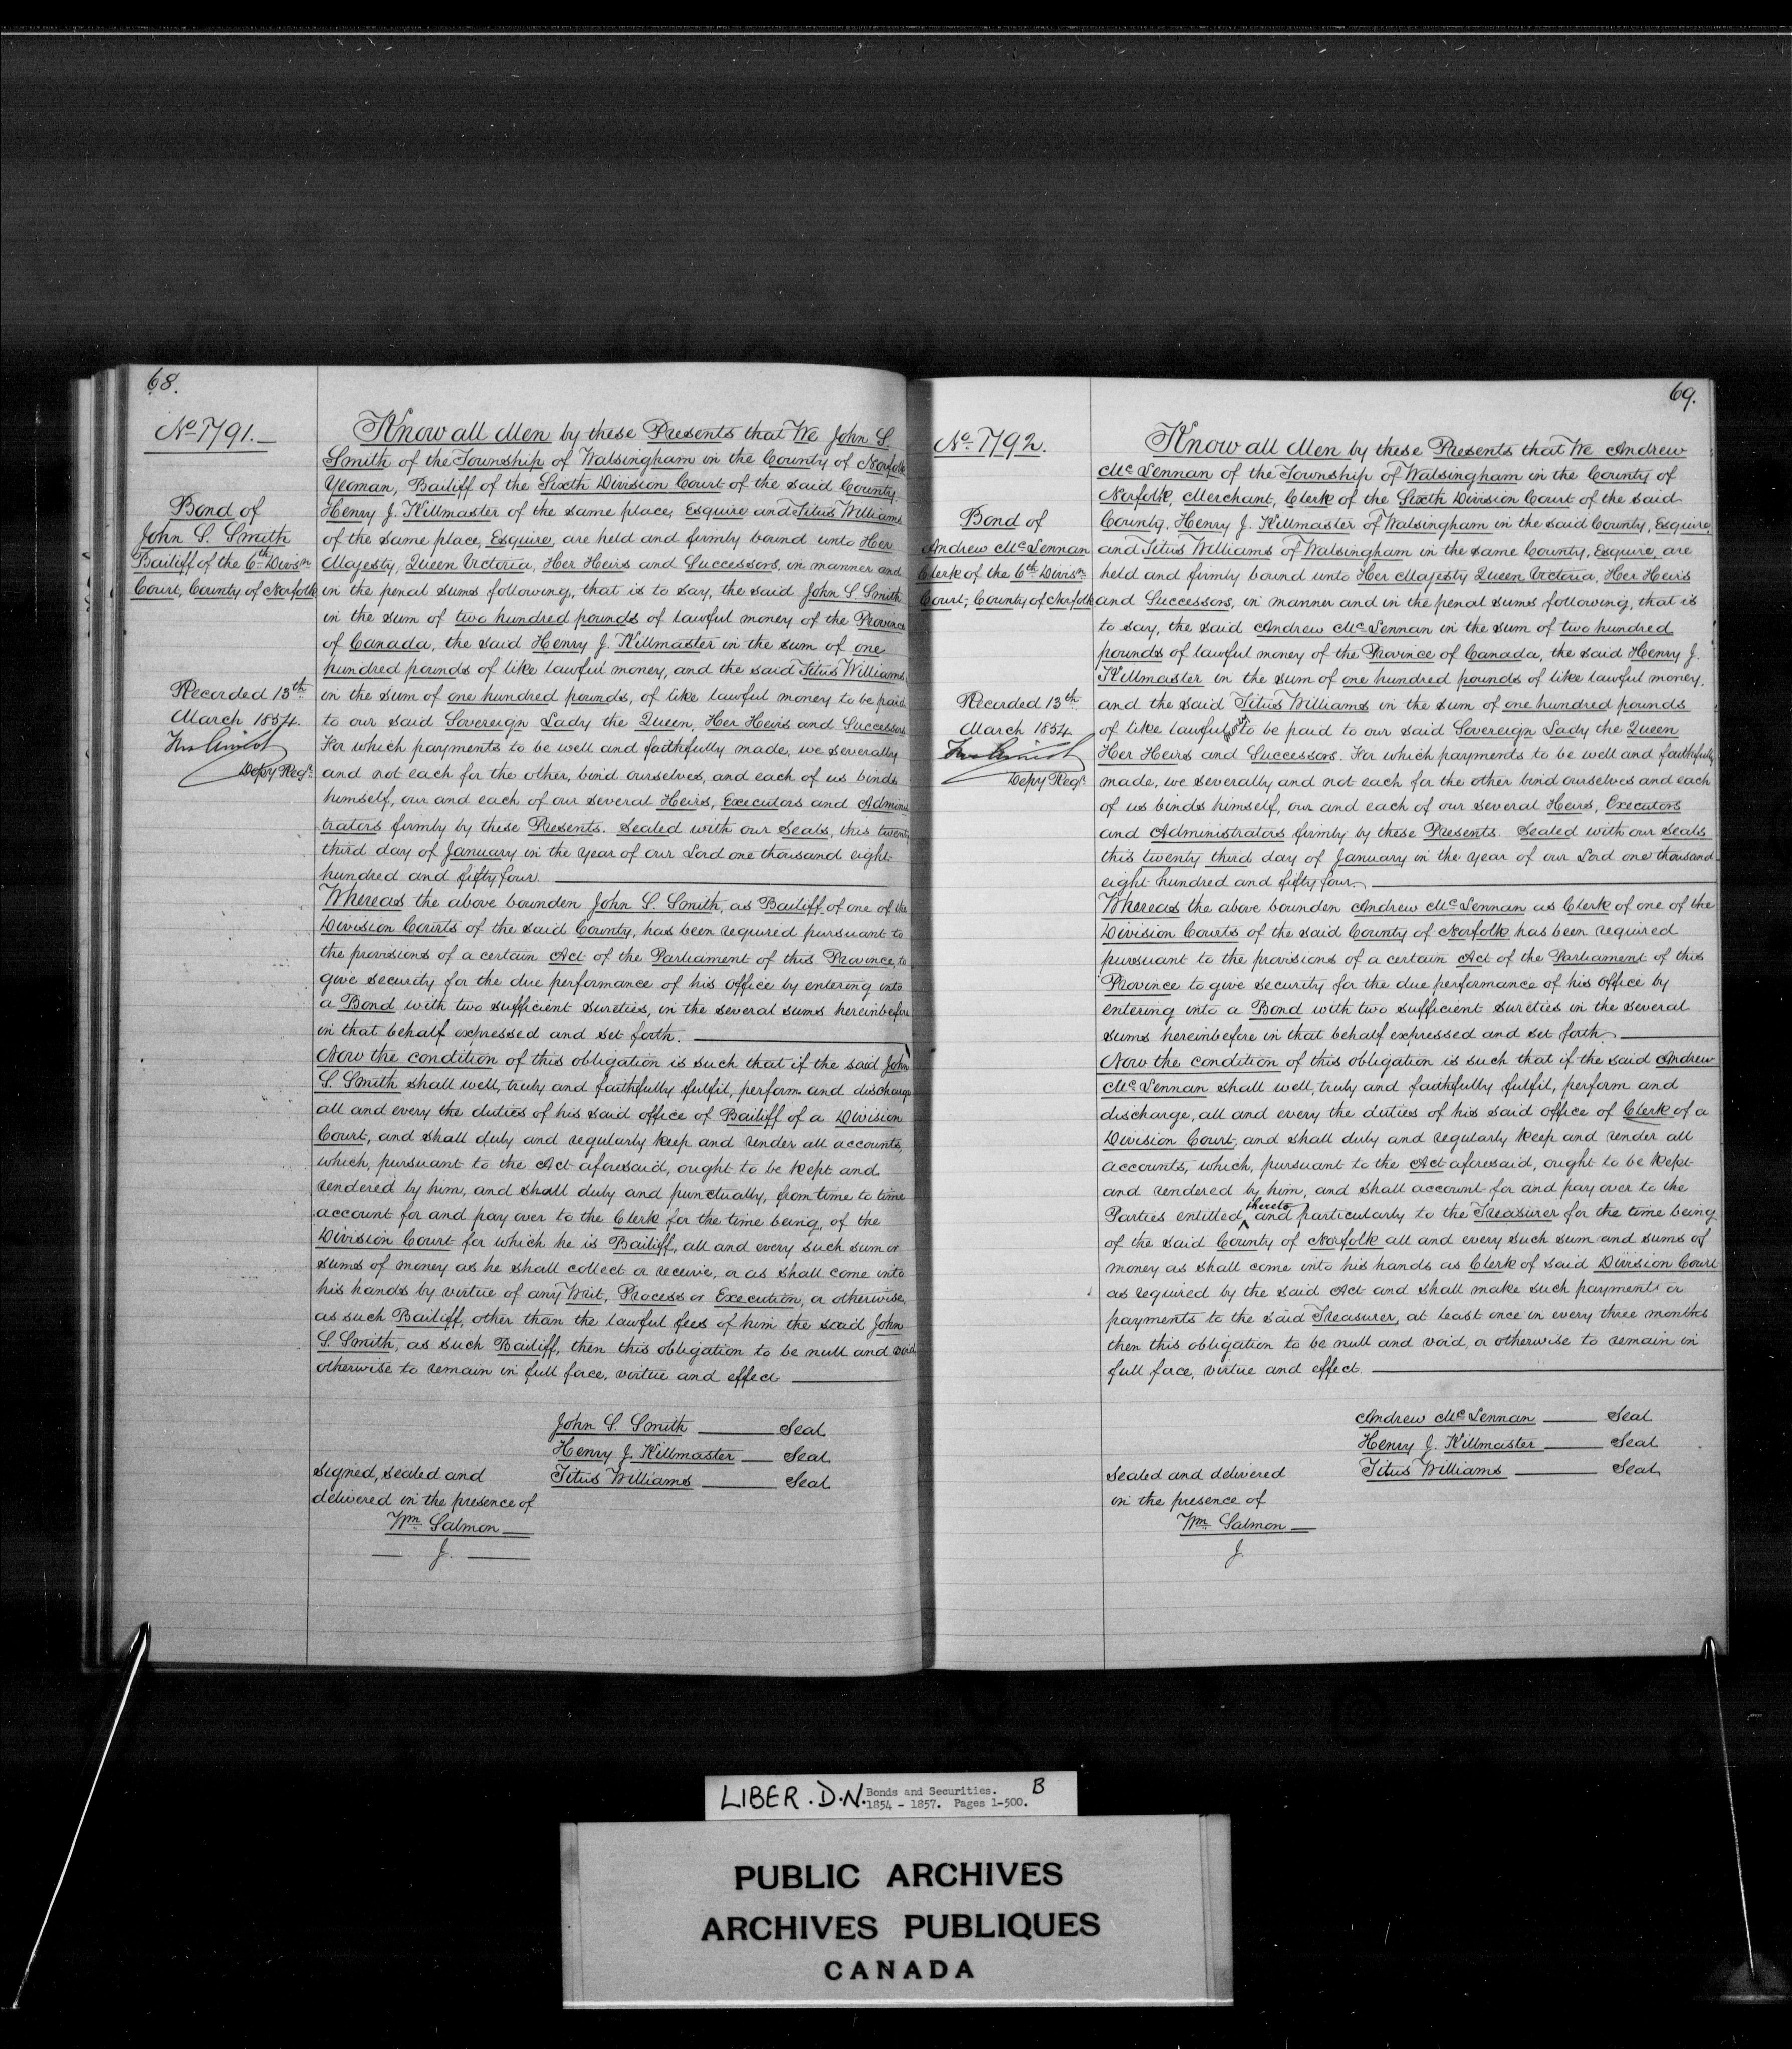 68.
No. 7791.
Bond of
John S. Smith
Bailiff of the 6th Divisn
Court, County of Norfolk
Recorded 13th
March 1854.
Depy Regr.
Know all Men by these Presents that We John S.
Smith of the Township of Walsingham in the County of Norfolk
Yeoman, Bailiff of the Sixth Division Court of the said County.
Henry J. Killmaster of the same place, Esquire and Titus Williams
of the same place, Esquire, are held and firmly bound unto Her
Majesty, Queen Victoria, Her Heirs and Successors, in manner and
in the penal sums following, that is to say, the said John S. Smith
in the sum of two hundred pounds of lawful money of the Province
of Canada, the said Henry J. Killmaster in the sum of one
hundred pounds of like lawful money, and the said Titus Williams
in the sum of one hundred pounds, of like lawful money to be paid
to our said Sovereign Lady the Queen, Her Heirs and Successors
For which payments to be well and faithfully made, we severally
and not each for the other, bind ourselves, and each of us binds
himself, our and each of our several Heirs, Executors and Adminis
trators firmly by these Presents. Sealed with our Seals, this twenty
third day of January in the year of our Lord one thousand eight
hundred and fifty four.
Whereas the above bounden John S. Smith, as Bailiff of one of the
Division Courts of the said County, has been required pursuant to
the provisions of a certain Act of the Parliament of this Province, to
give security for the due performance of his office by entering into
a Bond with two sufficient sureties, in the several sums hereinbefore
in that behalf expressed and set forth.
Now the condition of this obligation is such that if the said John
S. Smith shall well, truly and faithfully fulfil, perform and discharge
all and every the duties of his said office of Bailiff of a Division
Court, and shall duly and regularly keep and render all accounts,
which, pursuant to the Act aforesaid, ought to be kept and
rendered by him, and shall duly and punctually, from time to time
account for and pay over to the Clerk for the time being, of the
Division Court for which he is Bailiff, all and every such sum or
sums of money as he shall collect or receive, or as shall come into
his hands by virtue of any Writ, Process or Execution, or otherwise,
as such Bailiff, other than the lawful fees of him the said John
S. Smith, as such Bailiff, then this obligation to be null and void
otherwise to remain in full force, virtue and effect
John S. Smith Seal
Henry J. Killmaster Seal
Titus Williams Seal
Signed, sealed and
delivered in the presence of
Wm. Salmon
J.
69.
No. 7792.
Bond of
Andrew McLennan
Clerk of the 6th Divisn
Court, County of Norfolk
Recorded 13th
March 1854
Depy Regr.
Know all Men by these Presents that We Andrew
McLennan of the Township of Walsingham in the County of
Norfolk, Merchant, Clerk of the Sixth Division Court of the said
County, Henry J. Killmaster of Walsingham in the said County, Esquire,
and Titus Williams of Walsingham in the same County, Esquire, are
held and firmly bound unto Her Majesty Queen Victoria, Her Heirs
and Successors, in manner and in the penal sums following, that is
to say, the said Andrew McLennan in the sum of two hundred
pounds of lawful money of the Province of Canada, the said Henry J.
Killmaster in the sum of one hundred pounds of like lawful money,
and the said Titus Williams in the sum of one hundred pounds
of like lawful to be paid to our said Sovereign Lady the Queen
Her Heirs and Successors. For which payments to be well and faithfully
made, we severally and not each for the other bind ourselves and each
of us binds himself, our and each of our several Heirs, Executors
and Administrators firmly by these Presents. Sealed with our Seals
this twenty third day of January in the year of our Lord one thousand
eight hundred and fifty four.
Whereas the above bounden Andrew McLennan as Clerk of one of the
Division Courts of the said County of Norfolk has been required
pursuant to the provisions of a certain Act of the Parliament of this
Province to give security for the due performance of his office by
entering into a Bond with two sufficient sureties in the several
sums hereinbefore in that behalf expressed and set forth.
Now the condition of this obligation is such that if the said Andrew
McLennan shall well, truly and faithfully fulfil, perform and
discharge, all and every the duties of his said office of Clerk of a
Division Court, and shall duly and regularly keep and render all
accounts, which, pursuant to the Act aforesaid, ought to be kept
and rendered by him, and shall account for and pay over to the
Parties entitled thereto and particularly to the Treasurer for the time being
of the said County of Norfolk all and every such sum and sums of
money as shall come into his hands as Clerk of said Division Court
as required by the said Act and shall make such payment or
payments to the said Treasurer, at least once in every three months
then this obligation to be null and void, or otherwise to remain in
full force, virtue and effect.
Andrew McLennan Seal
Henry J. Killmaster Seal
Titus Williams Seal
Sealed and delivered
in the presence of
Wm. Salmon
J.
LIBER . D.N. Bonds and Securities. B
1854 - 1857. Pages 1-500.
PUBLIC ARCHIVES
ARCHIVES PUBLIQUES
CANADA